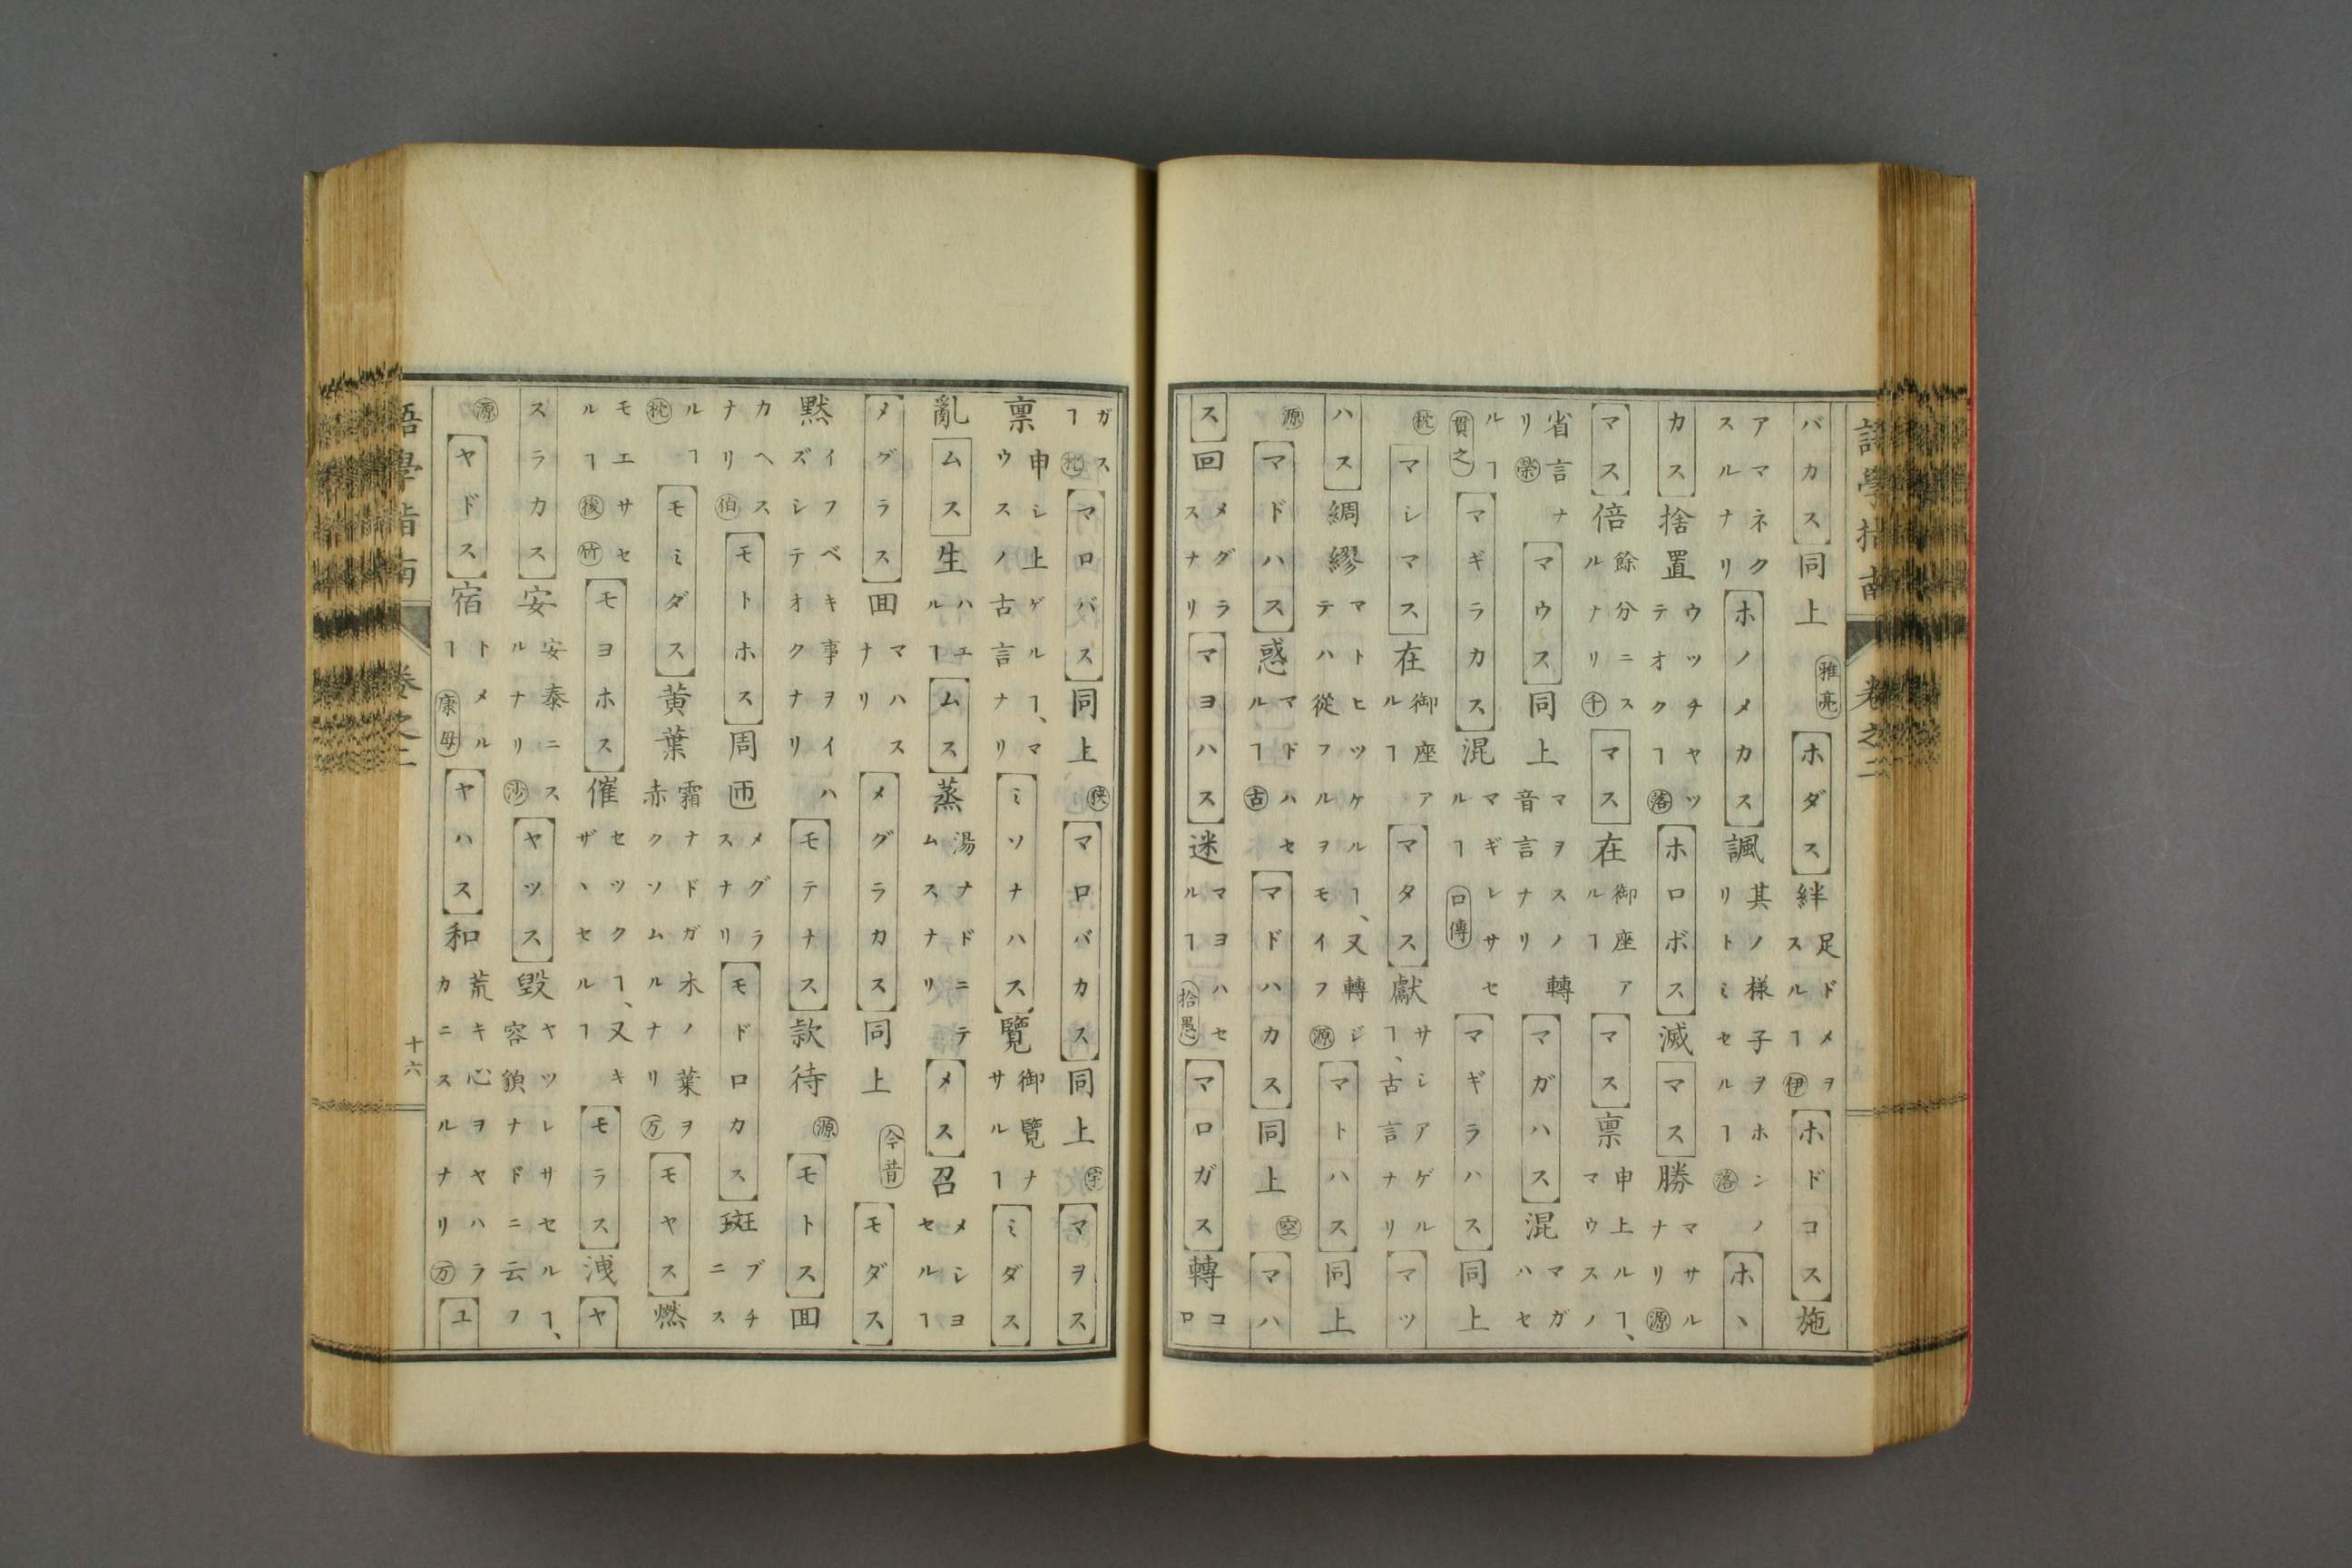 語學指南 卷之二
バカス同上雅亮ホダス絆足ドメヲスルヿ伊ホドコス施
アマネクスルナリホノメカス諷其ノ様子ヲホンノリトミセルヿ落ホヽ
カス捨置ウツチヤツテオクヿ落ホロボス滅マス勝マサルナリ源
マス倍餘分ニスルナリ千マス在御座アルヿマス禀申上ルヿ、マウスノ
省言ナリ榮マウス同上マヲスノ轉音言ナリマガハス混マガハセ
ルヿ貫之マギラカス混マギレサセルヿ口傳マギラハス同上
枕マシマス在御座アルヿマタス獻サシアゲルヿ、古言ナリマツ
ハス綢繆マトヒツケルヿ、又轉ジテハ從フルヲモイフ源マトハス同上
源マドハス惑マドハセルヿ古マドハカス同上空マハ
ス回メグラスナリマヨハス迷マヨハセルヿ拾愚マロガス轉コロ
ガスヿ枕マロバス同上狭マロバカス同上字マヲス
禀申シ上ゲルヿ、マウスノ古言ナリミソナハス覽御覽ナサルヿミダス
亂ムス生ハエルヿムス蒸湯ナドニテムスナリメス召メシヨセルヿ
メグラス囬マハスナリメグラカス同上今昔モダス
黙イフベキ事ヲイハズシテオクナリモテナス款待源モトス囬
カヘスナリ伯モトホス周匝メグラスナリモドロカス斑ブチニス
ルヿ枕モミダス黄葉霜ナドガ木ノ葉ヲ赤クソムルナリ万モヤス燃
モエサセルヿ後竹モヨホス催セツクヿ、又キザヽセルヿモラス洩ヤ
スラカス安安泰ニスルナリ沙ヤツス毀ヤツレサセルヿ、容貌ナドニ云フ
源ヤドス宿トメルヿ康母ヤハス和荒キ心ヲヤハラカニスルナリ万ユ
語學指南 卷之二 十六